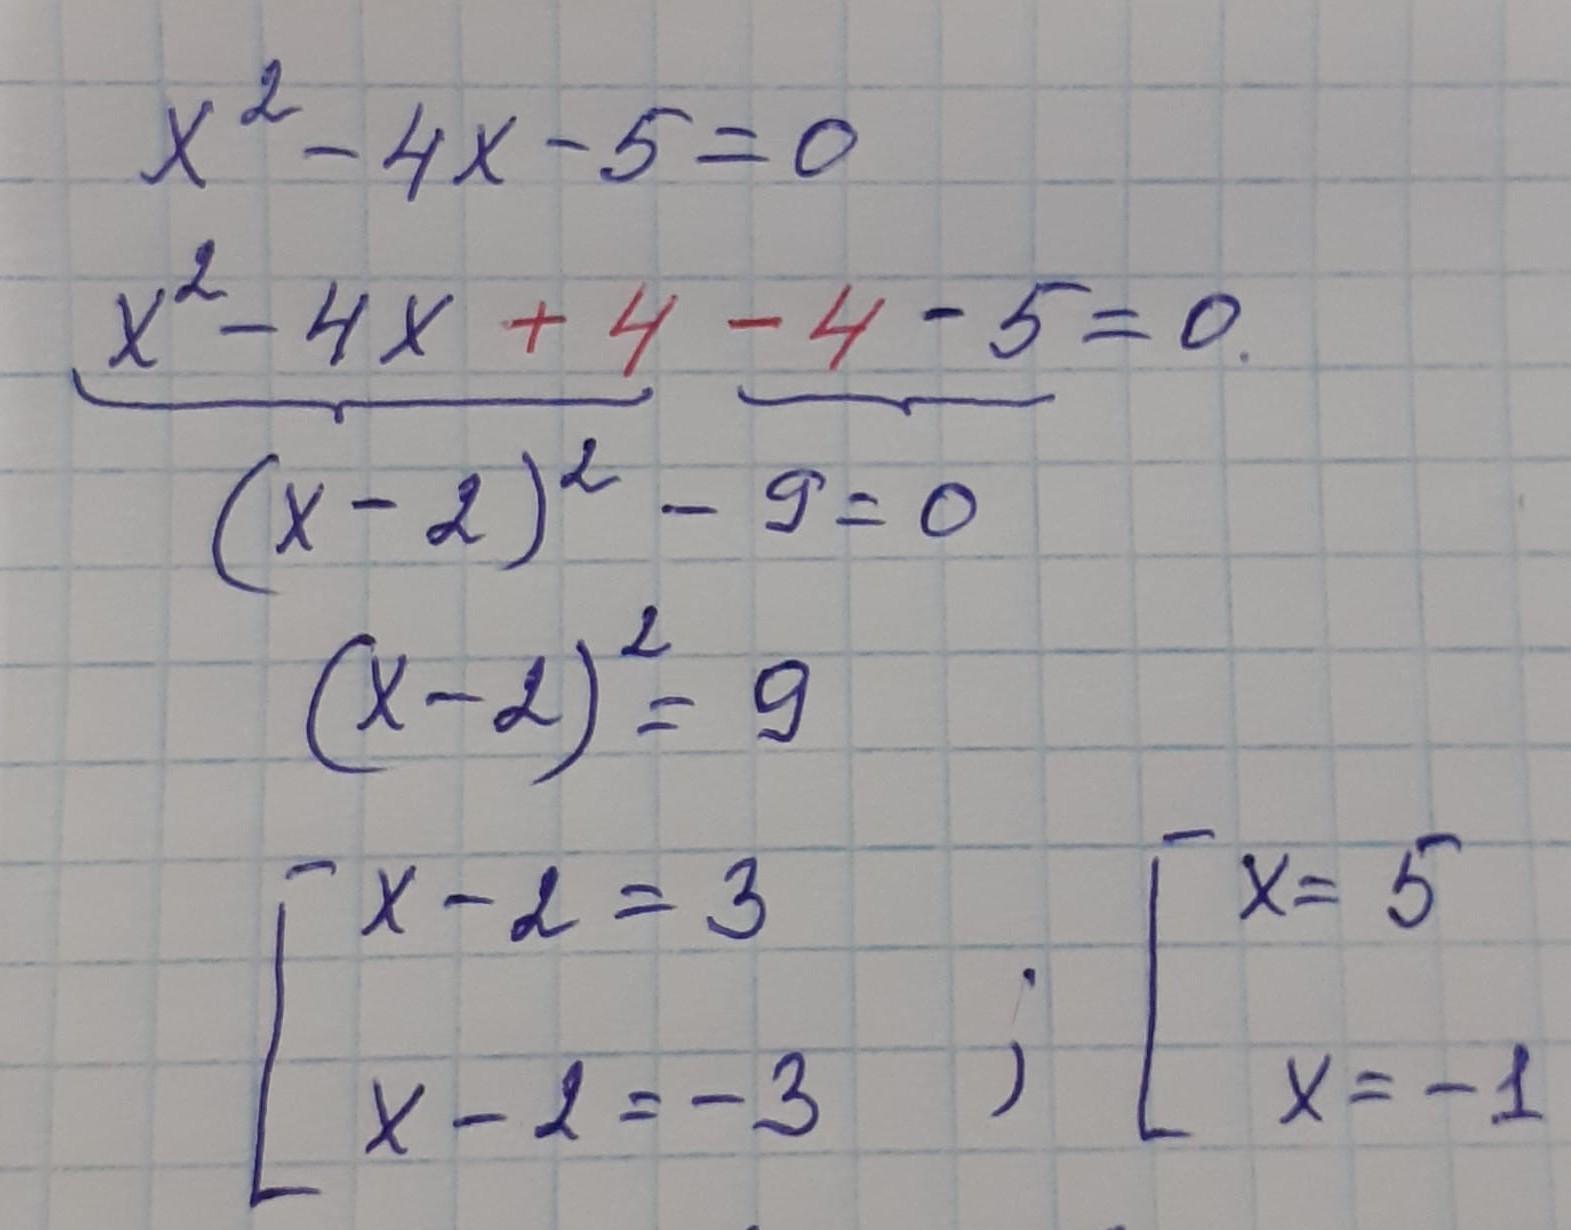 x² - 4x - 5 = 0
x² - 4x + 4 - 4 - 5 = 0.
(x - 2)² - 9 = 0
(x - 2)² = 9
[ x - 2 = 3 ; [ x = 5
x - 2 = -3 x = -1